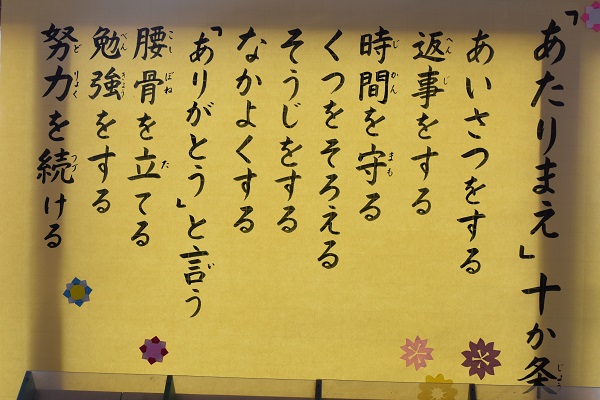 「あたりまえ」十か条
あいさつをする
返事をする
時間を守る
くつをそろえる
そうじをする
なかよくする
「ありがとう」と言う
腰骨を立てる
勉強をする
努力を続ける